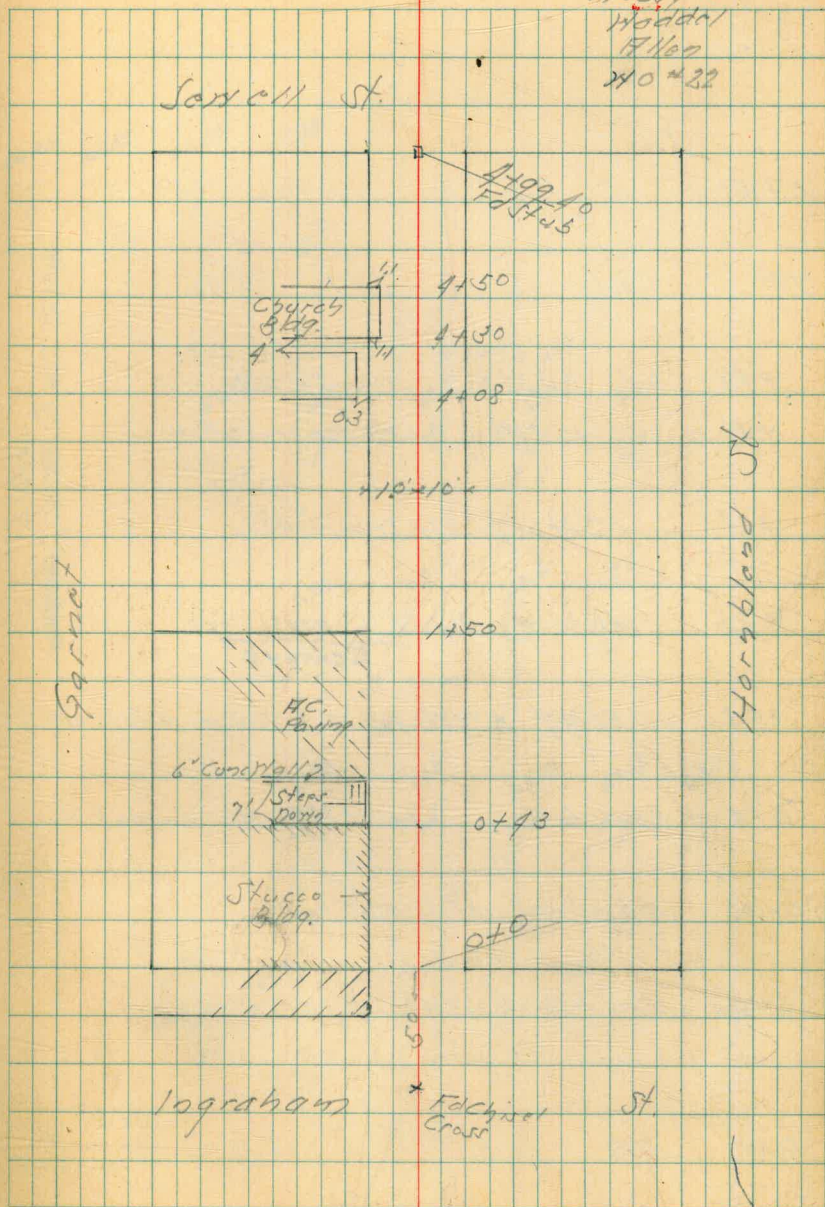 Waddal
Allen
WO #22
Sorrell St.
4+99.40
Fd Stub
1.1
4+50
Church
Bldg.
4+30
4'
1.1
4+08
0.3
10' 10'
Garnet
Hornbland St
1+50
A.C.
Paving
6" Conc Wall
Steps
Down
7'
0+43
Stucco
Bldg.
0+0
50
Ingraham St.
Fd Chisel
Cross